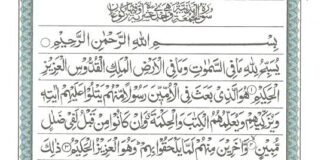 سُوْرَةُ الْجُمُعَةِ
بِسْمِ اللّٰهِ الرَّحْمٰنِ الرَّحِيْمِ
يُسَبِّحُ لِلّٰهِ مَا فِي السَّمٰوٰتِ وَمَا فِي الْاَرْضِ الْمَلِكِ الْقُدُّوْسِ الْعَزِيْزِ
الْحَكِيْمِ هُوَ الَّذِيْ بَعَثَ فِي الْاُمِّيّٖنَ رَسُوْلًا مِّنْهُمْ يَتْلُوْا عَلَيْهِمْ اٰيٰتِهٖ
وَيُزَكِّيْهِمْ وَيُعَلِّمُهُمُ الْكِتٰبَ وَالْحِكْمَةَ وَاِنْ كَانُوْا مِنْ قَبْلُ لَفِيْ ضَلٰلٍ
مُّبِيْنٍ وَّاٰخَرِيْنَ مِنْهُمْ لَمَّا يَلْحَقُوْا بِهِمْ وَهُوَ الْعَزِيْزُ الْحَكِيْمُ ذٰلِكَ